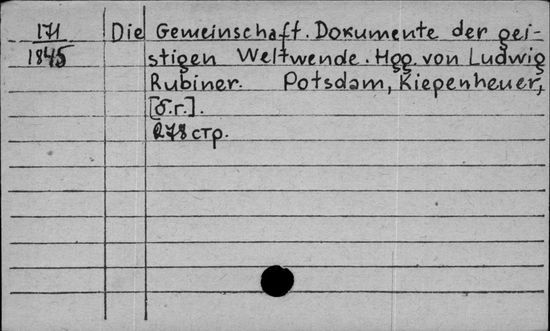 171
1845
Die Gemeinschaft. Dokumente der gei-
stigen Weltwende. Hgg. von Ludwig
Rubiner. Potsdam, Kiepenheuer,
[б.г.].
278 стр.